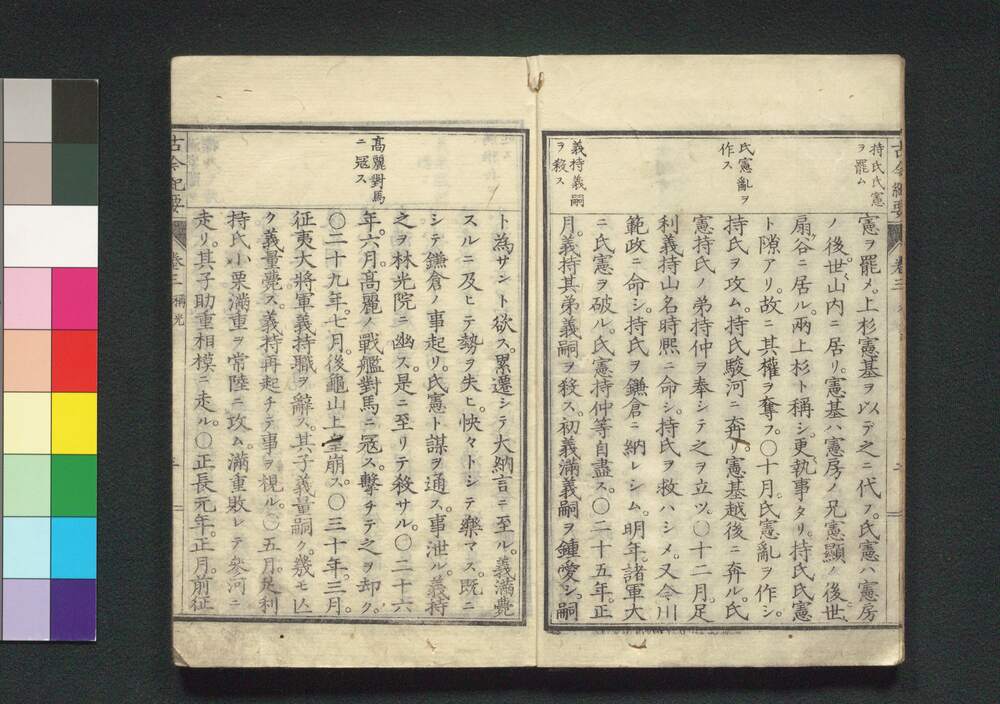 古今紀要
卷三
持氏氏憲
ヲ罷ム
氏憲亂ヲ
作ス
義持義嗣
ヲ殺ス
憲ヲ罷メ。上杉憲基ヲ以テ之ニ代フ。氏憲ハ憲房
ノ後世、山內ニ居リ。憲基ハ憲房ノ兄憲顯ノ後世、
扇谷ニ居ル。兩上杉ト稱シ、更執事タリ。持氏氏憲
ト隙アリ。故ニ其權ヲ奪フ。〇十月。氏憲亂ヲ作シ。
持氏ヲ攻ム。持氏駿河ニ奔リ。憲基越後ニ奔ル。氏
憲持氏ノ弟持仲ヲ奉シテ之ヲ立ツ。〇十二月。足
利義持山名時熙ニ命シ。持氏ヲ救ハシメ。又今川
範政ニ命シ。持氏ヲ鎌倉ニ納レシム。明年。諸軍大
ニ氏憲ヲ破ル。氏憲持仲等自盡ス。〇二十五年。正
月。義持其弟義嗣ヲ殺ス。初義滿義嗣ヲ鍾愛シ。嗣
高麗對馬
ニ冦ス
ト為サント欲ス。累遷シテ大納言ニ至ル。義滿薨
スルニ及ヒテ勢ヲ失ヒ。怏々トシテ樂マス。既ニ
シテ鎌倉ノ事起リ。氏憲ト謀ヲ通ス。事泄ル。義持
之ヲ林光院ニ幽ス。是ニ至リテ殺サル。〇二十六
年。六月。高麗ノ戰艦對馬ニ冦ス。擊チテ之ヲ却ク。
〇二十九年。七月。後龜山上皇崩ス。〇三十年。三月。
征夷大將軍義持職ヲ辭ス。其子義量嗣ク。幾モ亡
ク義量薨ス。義持再起チテ事ヲ視ル。〇五月。足利
持氏小栗滿重ヲ常陸ニ攻ム。滿重敗レテ參河ニ
走リ。其子助重相模ニ走ル。〇正長元年。正月。前征
古今紀要
卷三
稱光